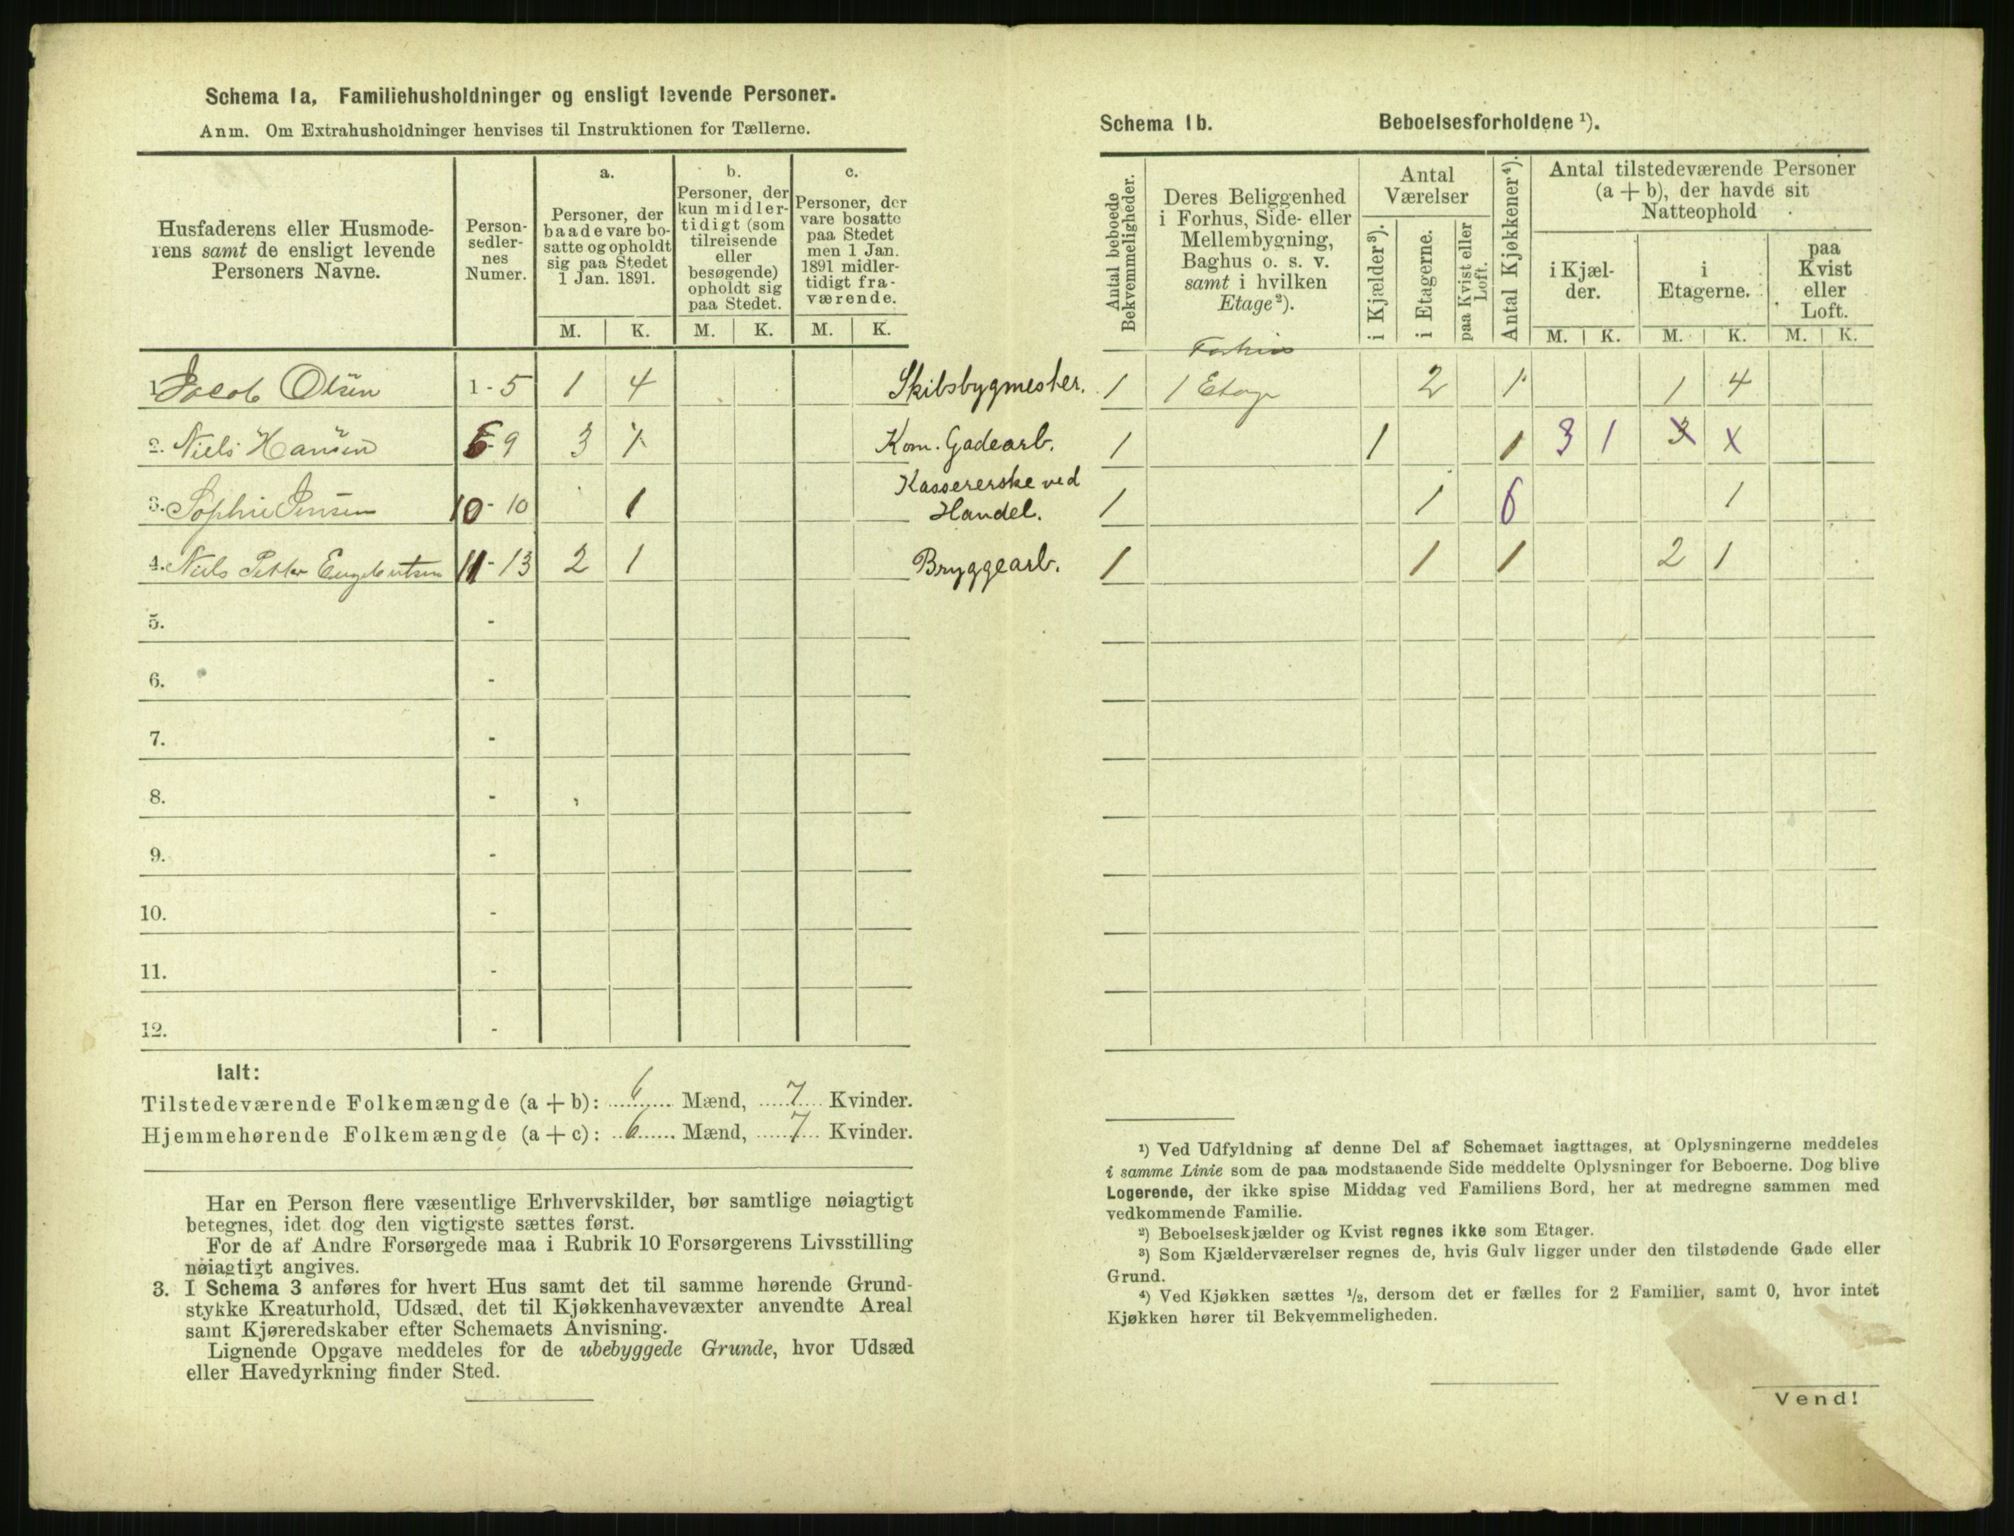 Schema 1a, Familiehusholdninger og ensligt levende Personer.
Anm. Om Extrahusholdninger henvises til Instruktionen for Tællerne.
Husfaderens eller Husmode-
rens samt de ensligt levende
Personers Navne.
Person-
sedler-
nes
Numer.
a.
Personer, der
baade vare bo-
satte og opholdt
sig paa Stedet
1 Jan. 1891.
b.
Personer, der
kun midler-
tidigt (som
tilreisende
eller
besøgende)
opholdt sig
paa Stedet.
c.
Personer, der
vare bosatte
paa Stedet
men 1 Jan.
1891 midler-
tidigt fra-
værende.
M. K. M. K. M. K.
1. Jacob Olsen 1 - 5 1 4 Skibsbygmester.
2. Niels Hansen 6 - 9 3 1 Kom. Gadearb.
3. Sophie Jensen 10 - 10 1 Kassererske ved
Handel.
4. Niels Petter Engebretsen 11 - 13 2 1 Bryggearb.
5. -
6. -
7. -
8. -
9. -
10. -
11. -
12. -
Ialt:
Tilstedeværende Folkemængde (a + b): 6 Mænd, 7 Kvinder.
Hjemmehørende Folkemængde (a + c): 6 Mænd, 7 Kvinder.
Har en Person flere væsentlige Erhvervskilder, bør samtlige nøiagtigt
betegnes, idet dog den vigtigste sættes først.
For de af Andre Forsørgede maa i Rubrik 10 Forsørgerens Livsstilling
nøiagtigt angives.
3. I Schema 3 anføres for hvert Hus samt det til samme hørende Grund-
stykke Kreaturhold, Udsæd, det til Kjøkkenhavevæxter anvendte Areal
samt Kjøreredskaber efter Schemaets Anvisning.
Lignende Opgave meddeles for de ubebyggede Grunde, hvor Udsæd
eller Havedyrkning finder Sted.
Schema 1b. Beboelsesforholdene ¹).
Antal beboede
Bekvemmeligheder.
Deres Beliggenhed
i Forhus, Side- eller
Mellembygning,
Baghus o. s. v.
samt i hvilken
Etage²).
Antal
Værelser
i Kjælder³).
i Etagerne.
paa Kvist eller
Loft.
Antal Kjøkkener⁴).
Antal tilstedeværende Personer
(a + b), der havde sit
Natteophold
i Kjæl-
der.
i
Etagerne.
paa
Kvist
eller
Loft.
M. K. M. K. M. K.
Forhus
1 1 Etage 2 1 1 4
1 1 1 3 1 3 x
1 1 6 1
1 1 1 2 1
¹) Ved Udfyldning af denne Del af Schemaet iagttages, at Oplysningerne meddeles
i samme Linie som de paa modstaaende Side meddelte Oplysninger for Beboerne. Dog blive
Logerende, der ikke spise Middag ved Familiens Bord, her at medregne sammen med
vedkommende Familie.
²) Beboelseskjælder og Kvist regnes ikke som Etager.
³) Som Kjælderværelser regnes de, hvis Gulv ligger under den tilstødende Gade eller
Grund.
⁴) Ved Kjøkken sættes ½, dersom det er fælles for 2 Familier, samt 0, hvor intet
Kjøkken hører til Bekvemmeligheden.
Vend!